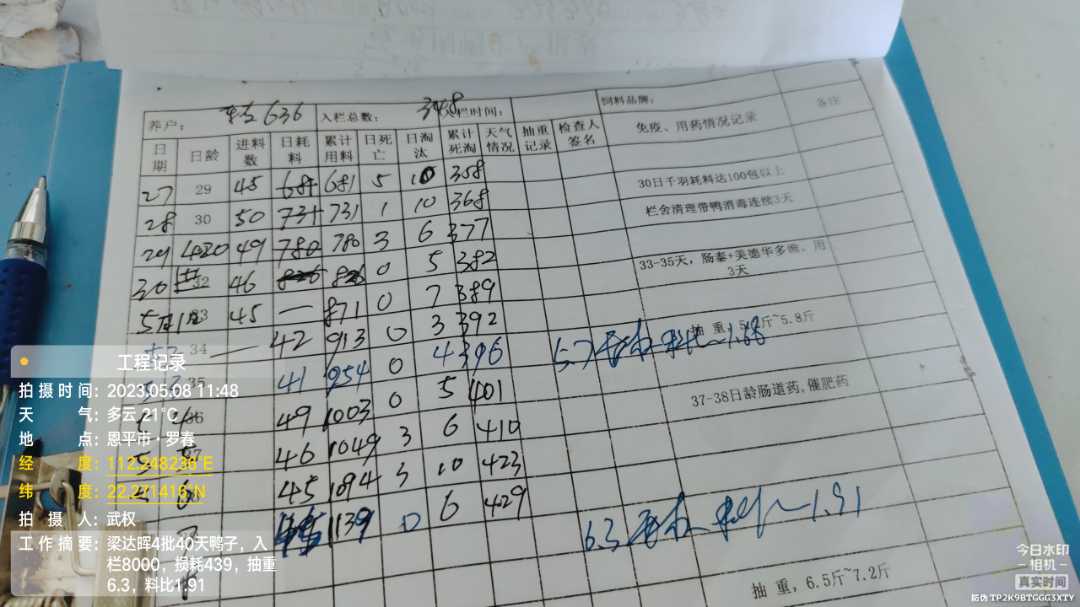 养户: 636 入栏总数: 348 栏时间: 饲料品牌:
日期 日龄 进料数 日耗料 累计用料 日死亡 日淘汰 累计死淘 天气情况 抽重记录 检查人签名 免疫、用药情况记录 备注
27 29 45 681 681 5 10 358
30日千羽耗料达100包以上
28 30 50 731 731 1 10 368
栏舍清理带鸭消毒连续3天
29 49 780 780 3 6 377
30 32 46 826 826 0 5 382
33-35天，肠泰+美德华多幽，用3天
5月1日 45 — 871 0 7 389
34 — 42 913 0 3 392
抽重，5. 斤~5.8斤
35 41 954 0 4 396 5.7 ~1.88
49 1003 0 5 401
37-38日龄肠道药,催肥药
46 1049 3 6 410
45 1094 3 10 423
1139 0 6 429 6.3 ~1.91
抽重，6.5斤~7.2斤
工程记录
拍摄时间：2023.05.08 11:48
天气：多云 21℃
地点：恩平市·罗春
经度：112.248236°E
纬度：22.271416°N
拍摄人：武权
工作摘要：梁达晖4批40天鸭子，入
栏8000，损耗439，抽重
6.3，料比1.91
今日水印
相机
真实时间
防伪 TP2K9BTGGG3XTY